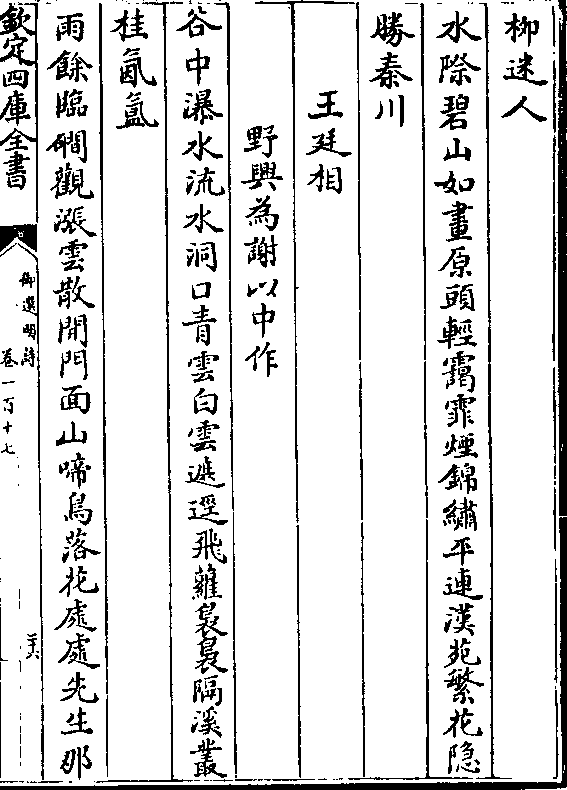 柳迷人
水際碧山如畫原頭輕靄霏煙錦繡平連漢苑繁花隐
勝秦川
王廷相
野興為謝以中作
谷中瀑水流水洞口青雲白雲遮逕飛蘿裊裊隔溪叢
桂氤氲
雨餘臨磵觀漲雲散開門面山啼鳥落花處處先生那
欽定四庫全書
御選明詩
卷一百十七
三十六